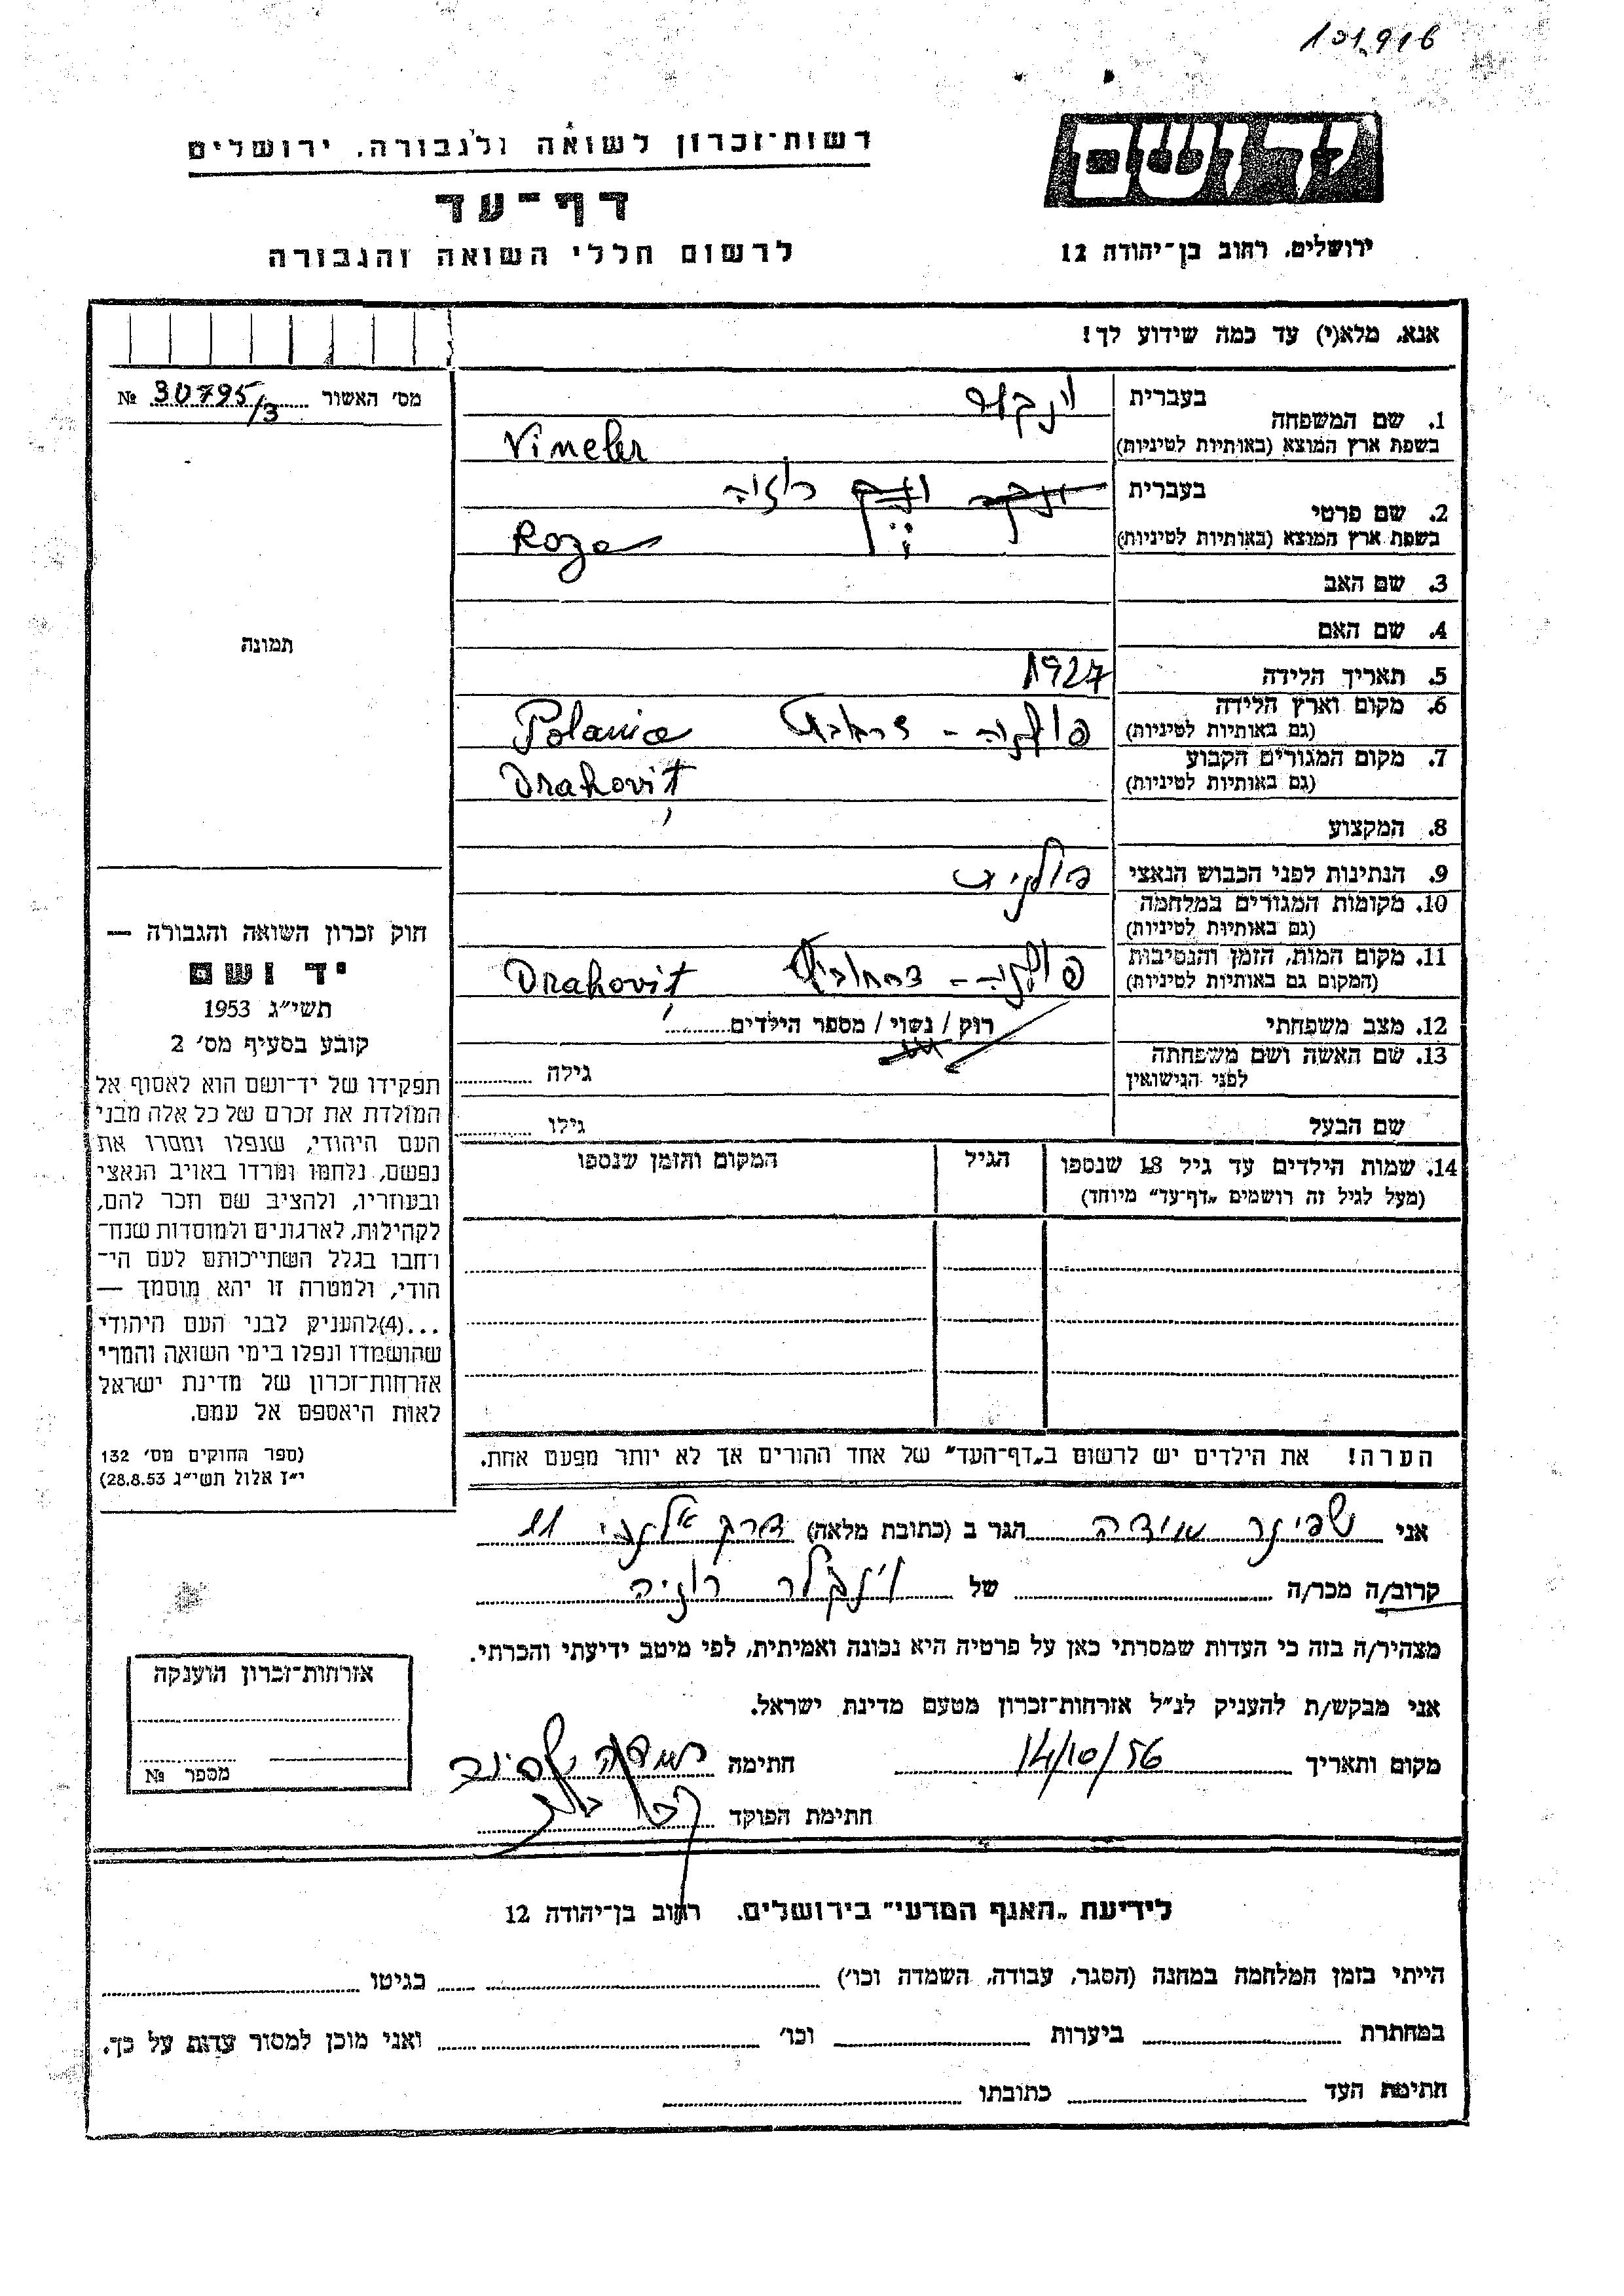 101,916
רשות־זכרון לשואה ולגבורה, ירושלים
דף־עד
לרשום חללי השואה והגבורה
יד ושם
ירושלים, רחוב בן־יהודה 12
אנא, מלא(י) עד כמה שידוע לך!
מס׳ האשור 30795/3 №
תמונה
חוק זכרון השואה והגבורה —
יד ושם
תשי״ג 1953
קובע בסעיף מס׳ 2
תפקידו של יד־ושם הוא לאסוף אל
המולדת את זכרם של כל אלה מבני
העם היהודי, שנפלו ומסרו את
נפשם, נלחמו ומרדו באויב הנאצי
ובעוזריו, ולהציב שם וזכר להם,
לקהילות, לארגונים ולמוסדות שנח־
רחבו בגלל השתייכותם לעם הי־
הודי, ולמטרה זו יהא מוסמך —
...(4)להעניק לבני העם היהודי
שהושמדו ונפלו בימי השואה והמרי
אזרחות־זכרון של מדינת ישראל
לאות היאספם אל עמם.
(ספר החוקים מס׳ 132
י״ז אלול תשי״ג 28.8.53)
1. שם המשפחה
בעברית
בשפת ארץ המוצא (באותיות לטיניות) Vineler
2. שם פרטי
בעברית רוזה
בשפת ארץ המוצא (באותיות לטיניות) Roza
3. שם האב
4. שם האם
5. תאריך הלידה 1927
6. מקום וארץ הלידה פולניה - Polania
(גם באותיות לטיניות)
7. מקום המגורים הקבוע Drahoviț
(גם באותיות לטיניות)
8. המקצוע
9. הנתינות לפני הכבוש הנאצי פולנית
10. מקומות המגורים במלחמה
(גם באותיות לטיניות)
11. מקום המות, הזמן והנסיבות פולניה - Drahoviț
(המקום גם באותיות לטיניות)
12. מצב משפחתי רוק / נשוי / מספר הילדים
13. שם האשה ושם משפחתה
לפני הנישואין גילה
שם הבעל גילו
14. שמות הילדים עד גיל 18 שנספו הגיל המקום והזמן שנספו
(מעל לגיל זה רושמים „דף־עד״ מיוחד)
הערה! את הילדים יש לרשום ב„דף־העד״ של אחד ההורים אך לא יותר מפעם אחת.
אני הגר ב (כתובת מלאה) 11
קרוב/ה מכר/ה של וינקלר רוזיה
מצהיר/ה בזה כי העדות שמסרתי כאן על פרטיה היא נכונה ואמיתית, לפי מיטב ידיעתי והכרתי.
אני מבקש/ת להעניק לנ״ל אזרחות־זכרון מטעם מדינת ישראל.
מקום ותאריך 14/10/56 חתימה
חתימת הפוקד
אזרחות־זכרון הוענקה
מספר №
לידיעת „האגף המדעי״ בירושלים, רחוב בן־יהודה 12
הייתי בזמן המלחמה במחנה (הסגר, עבודה, השמדה וכו׳) בגיטו
במחתרת ביערות וכו׳ ואני מוכן למסור עדות על כך.
חתימת העד כתובתו